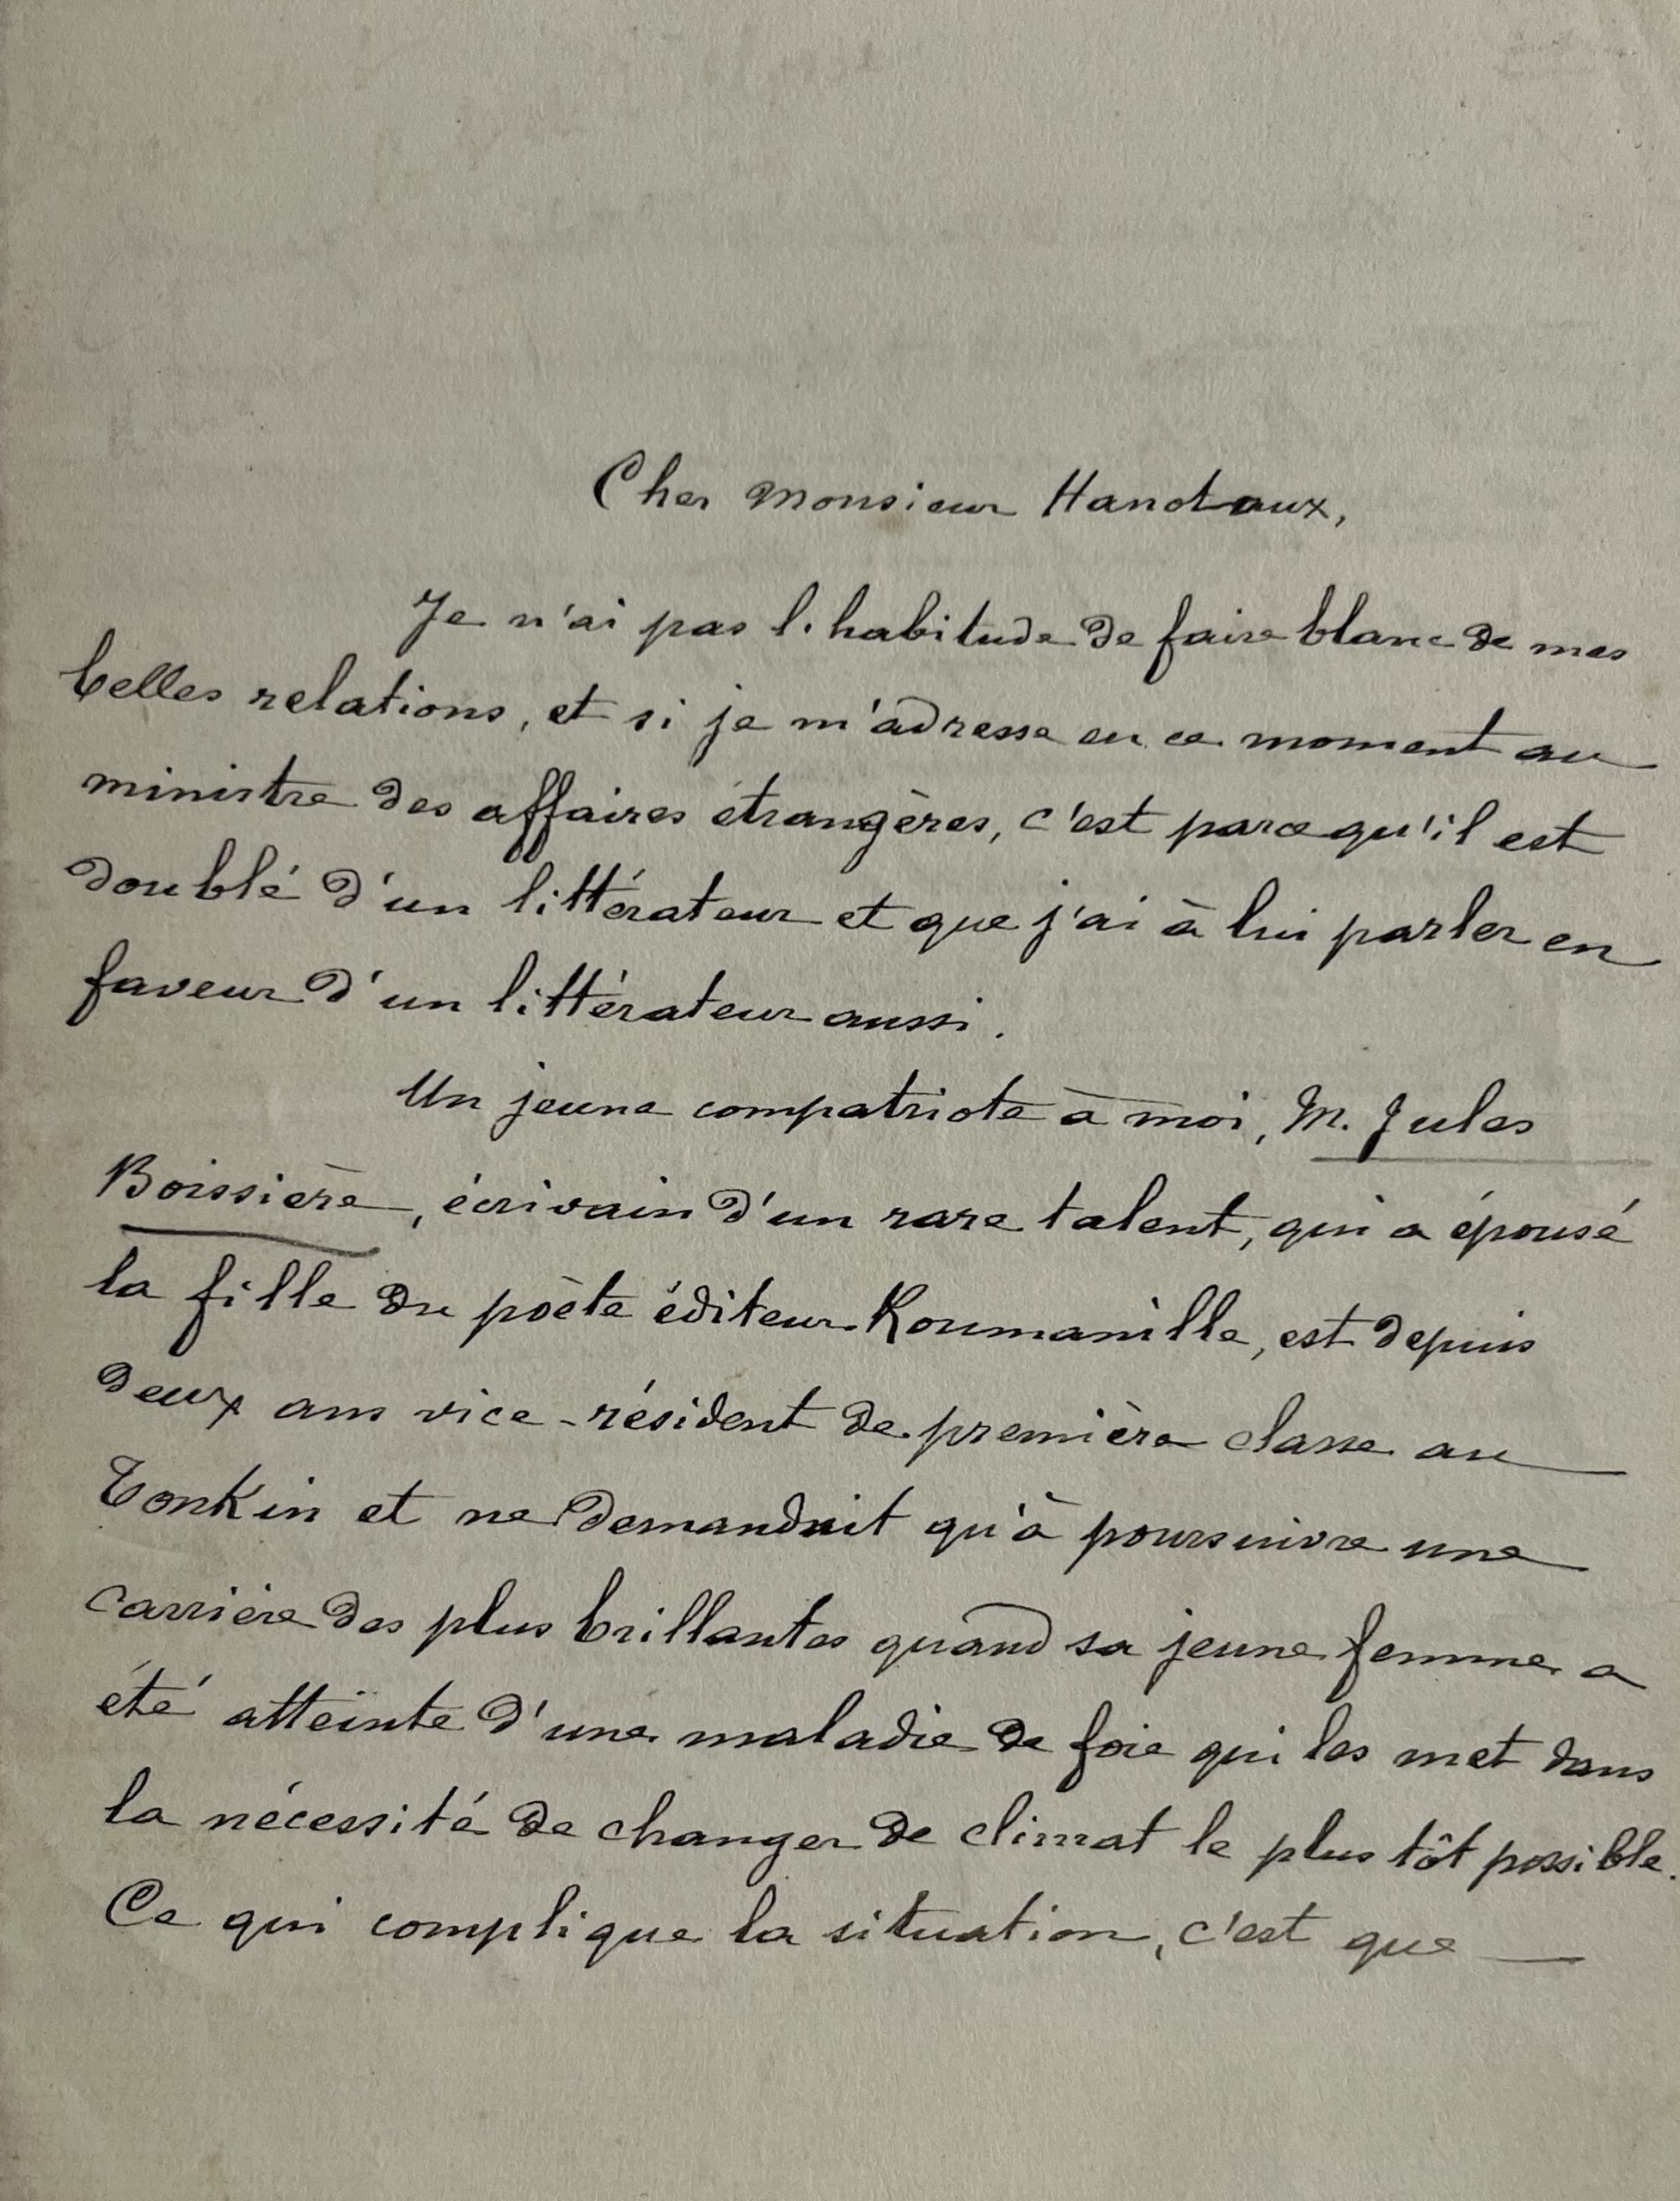 Cher Monsieur Hanotaux,
Je n'ai pas l'habitude de faire blanc de mes
belles relations, et si je m'adresse en ce moment au
ministre des affaires étrangères, c'est parce qu'il est
doublé d'un littérateur et que j'ai à lui parler en
faveur d'un littérateur aussi.
Un jeune compatriote à moi, M. Jules
Boissière, écrivain d'un rare talent, qui a épousé
la fille du poète éditeur Roumanille, est depuis
deux ans vice-résident de première classe au
Tonkin et ne demandait qu'à poursuivre une
carrière des plus brillantes quand sa jeune femme a
été atteinte d'une maladie de foie qui les met dans
la nécessité de changer de climat le plus tôt possible.
Ce qui complique la situation, c'est que